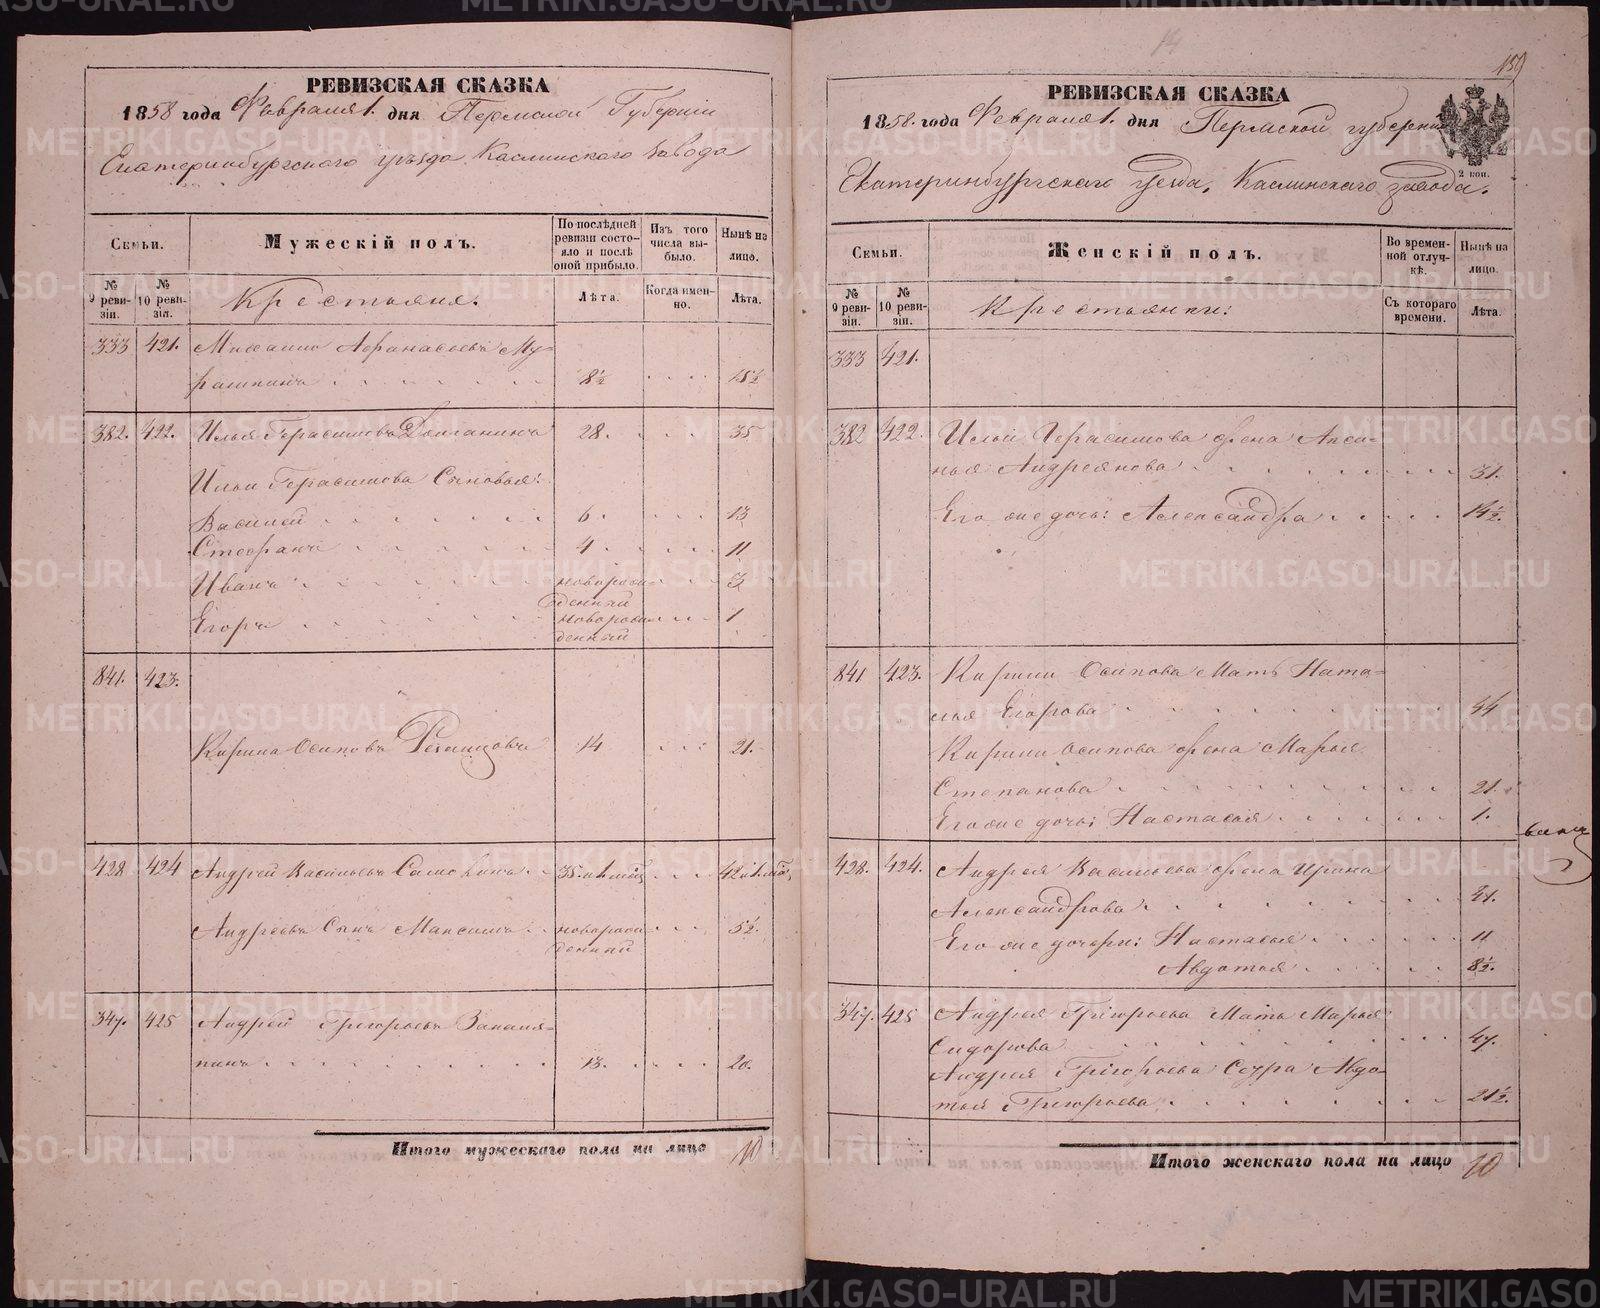 РЕВИЗСКАЯ СКАЗКА
1858 года Февраля 1. дня Пермской Губернiи
Екатеринбургского уѣзда Каслинского Завода
Семьи.
Мужескій полъ.
По послѣдней ревизіи состояло и послѣ оной прибыло.
Изъ того числа выбыло.
Нынѣ на лицо.
№ 9 ревизіи.
№ 10 ревизіи.
Крестьяня:
Лѣта.
Когда именно.
Лѣта.
333 421. Михаило Афанасьевъ Му-
рашкинъ 8½ 15½
382. 422. Илья Герасимовъ Долганинъ 28. 35
Ильи Герасимова Сыновья:
Василей 6. 13
Стефанъ 4. 11
Иванъ новорож- 3
денный
Егоръ новорож- 1
денный
841. 423.
Кирила Осиповъ 14 21.
428 424 Андрей Васильевъ 35. и 1. мѣс 42 и 1. мѣ.
Андреевъ Сынъ Максимъ новорож- 5½.
денный
347. 425 Андрей Григорьевъ
пинъ 13. 20.
Итого мужескаго пола на лицо 10
159
РЕВИЗСКАЯ СКАЗКА
1858. года Февраля 1. дня Пермской губерніи
2 коп.
Екатеринбургскаго уезда, Каслинскаго завода.
Семьи.
Женскій полъ.
Во временной отлучкѣ.
Нынѣ на лицо.
№ 9 ревизіи.
№ 10 ревизіи.
Крестьянки:
Съ котораго времени.
Лѣта.
333 421.
382 422. Ильи Герасимова жена Акси-
нья Андреянова 31.
Его же дочь: Александра 14½.
841 423. Кирили Осипова Мать Ната-
лья Егорова 44
Кирили Осипова жена Марья
Степанова 21.
Его же дочь: Настасья 1.
428. 424. Андрея Васильева жена Ирина
Александрова 41.
Его же дочери: Настасья 11
Авдотья 8½.
347. 425 Андрея Григорьева Мать Марья
Сидорова 47.
Андрея Григорьева Сестра Авдо-
тья Григорьева 21½.
Итого женскаго пола на лицо 10
METRIKI.GASO-URAL.RU